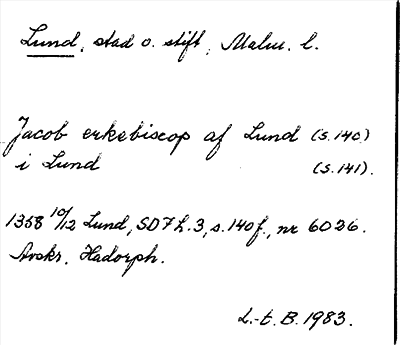 Lund, stad o. stift, Malm. l.
Jacob erkebiscop af Lund (s.140)
i Lund (s.141).
1358 10/12 Lund, SD 7 h.3, s.140 f., nr 6026.
Avskr. Hadorph.
L.-t. B. 1983.